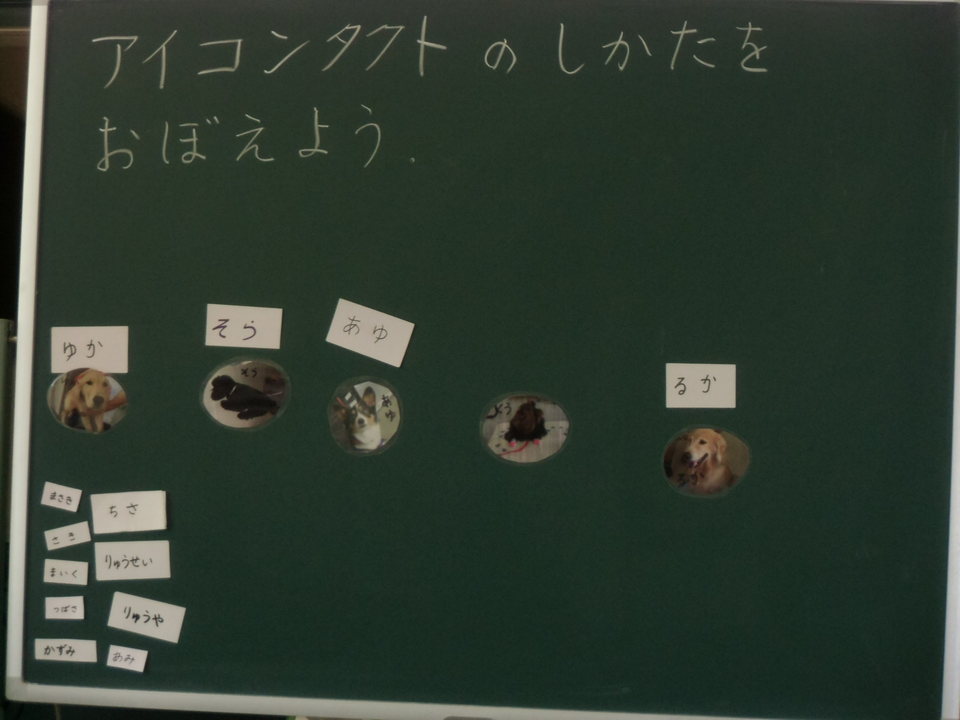 アイコンタクトのしかたを
おぼえよう.
ゆか
そら
あゆ
るか
そら
あゆ
るか
まさき
ちさ
さき
りゅうせい
まいく
つばさ
りゅうや
かずみ
あみ